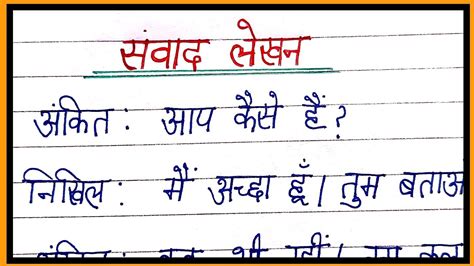 संवाद लेखन
अंकित : आप कैसे हैं?
निखिल : मैं अच्छा हूँ। तुम बताओ